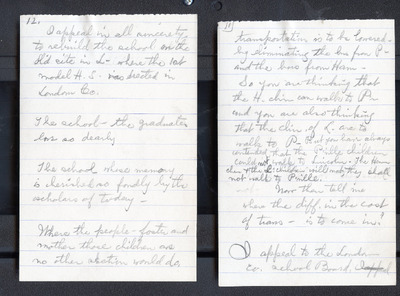 12.
I appeal in all sincerity
to rebuild the school on the
old site in L- where the 1st
model H. S. was erected in
Loudoun Co.
The school - the graduates
love so dearly
The school whose memory
is cherished so fondly by the
scholars of today -
Where the people - foster and
mother those children as
no other section would do.
transportation is to be lowered -
by eliminating the bus from P-
and the bus from Ham -
So you are thinking that
the H. chin can walk to P
and you are also thinking
that the chin of L. are to
walk to P- But you have always
contended that the P'ville children
could not walk to Lincoln - The Ham
chin & the L children will not they shall
not walk to P'ville.
Now then tell me
where the diff. in the cost
of trans - is to come in?
I appeal to the Loudoun
co. school Board.